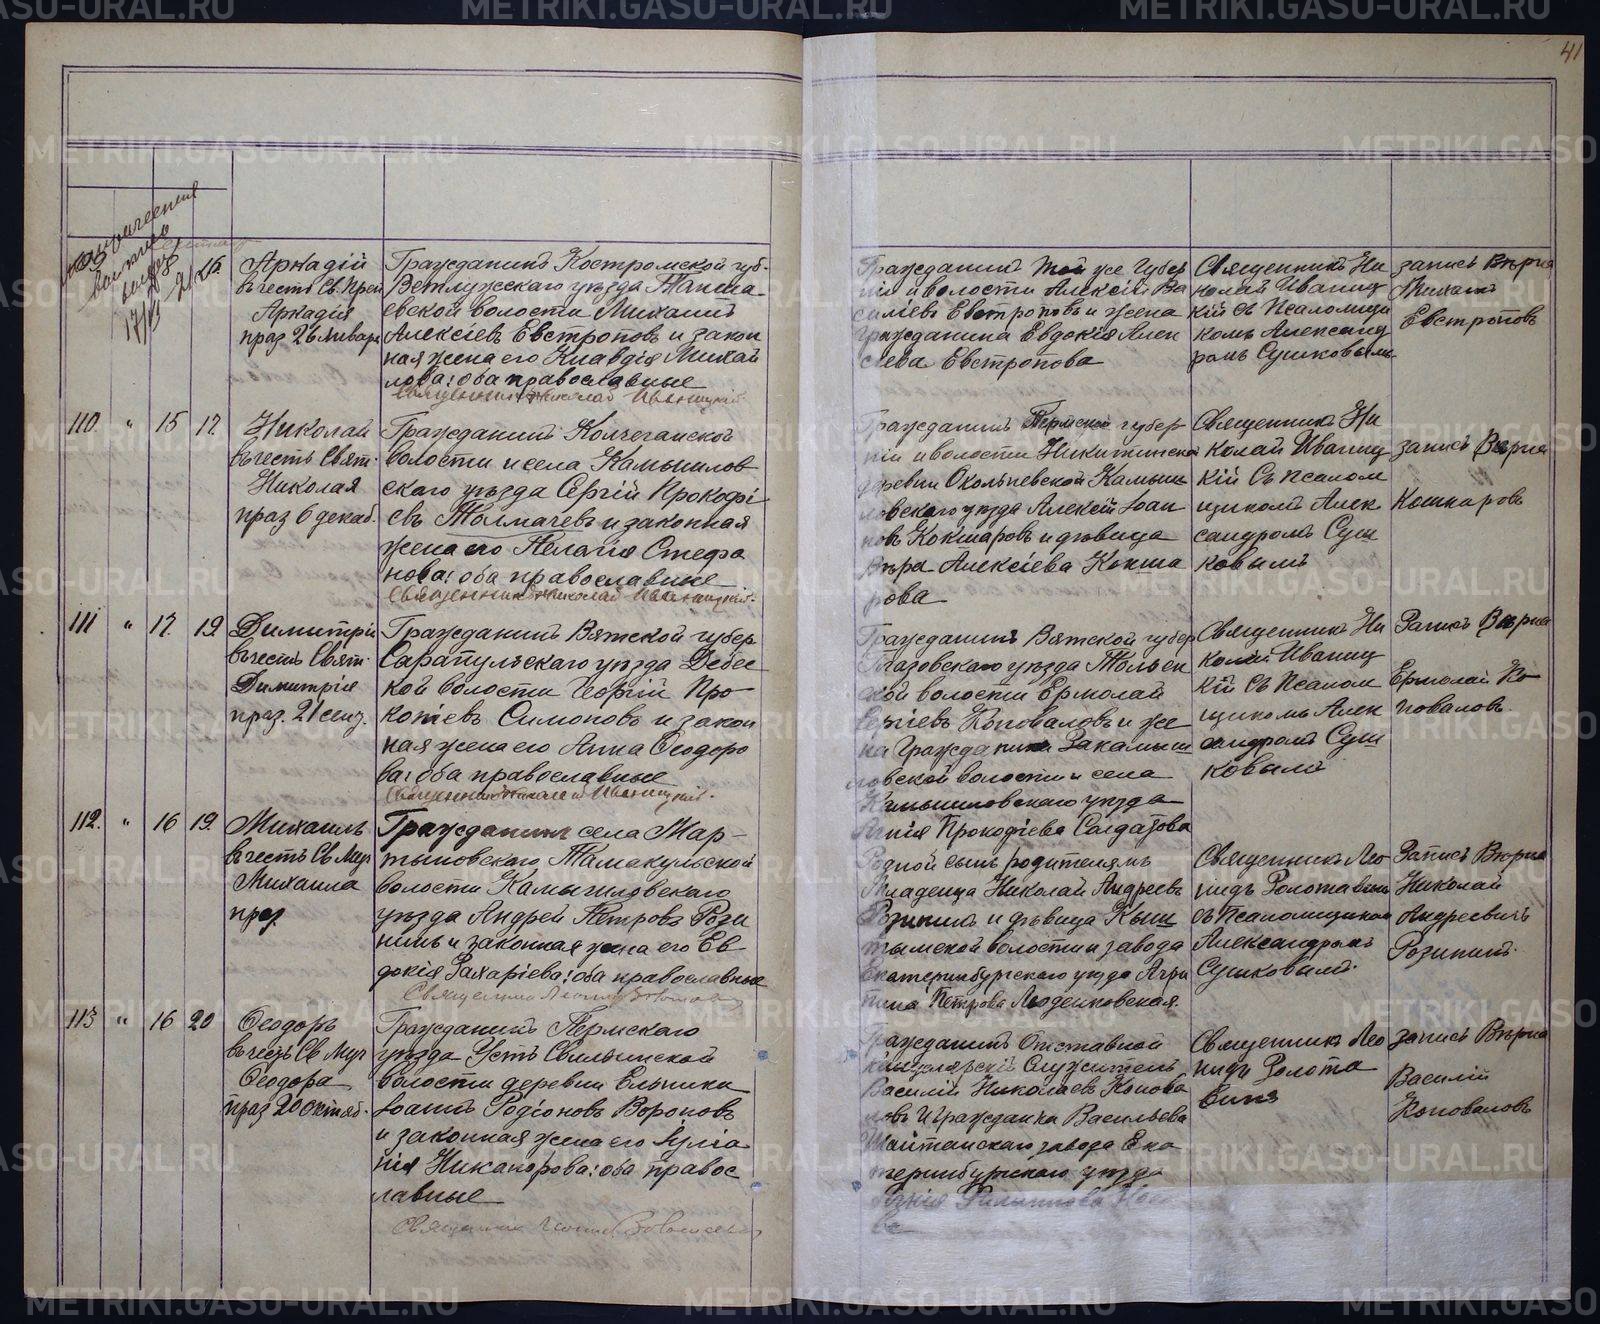 41
Аркадій
въ честь Св. Преп
Аркадія
праз 26 Января
Гражданинъ Костромской губ.
Ветлужскаго уѣзда
евской волости Михаилъ
Алексіевъ Евстроповъ и закон
ная жена его Клавдія Михай
лова: оба православные
Священникъ Николай Иваницкій
Гражданинъ той же Губер
ніи и волости Алексій Ва
силіевъ Евстроповъ и жена
Гражданина Евдокія Алек
сіева Евстропова
Священникъ Ни
колай Иваниц
кій съ Псаломщи
комъ Александ
ромъ Сушковымъ
запись Вѣрна
Михаилъ
Евстроповъ
110 " 15 17.
Николай
въ честь Свят.
Николая
праз 6 декаб.
Гражданинъ Колчеганской
волости и села Камышлов
скаго уѣзда Сергій Прокофі
евъ Толмачевъ и законная
жена его Пелагія Стефа
нова: оба православные
Священникъ Николай Иваницкій.
Гражданинъ Пермской губер
ніи и волости Никитинской
деревни Камыш
ловскаго уѣзда Алексій Іоан
новъ Кокшаровъ и дѣвица
Вѣра Алексіева Кокша
рова
Священникъ Ни
колай Иваниц
кій Съ Псалом
щикомъ Алек
сандромъ Суш
ковымъ
запись Вѣрна
Кокшаровъ
111 " 17. 19.
Димитрій
въ честь Свят.
Димитрія
праз. 21 сент.
Гражданинъ Вятской губер
Сарапульскаго уѣзда Дебес
кой волости Георгій Про
копіевъ Симоновъ и закон
ная жена его Анна Ѳеодоро
ва: оба православные
Священникъ Николай Иваницкій.
Гражданинъ Вятской губер
Глазовскаго уѣзда
ской волости Ермолай
Сергіевъ Коноваловъ и же
на Гражданина Закамыш
ловской волости и села
Камышловскаго уѣзда
Агнія Прокофіева Солдатова
Священникъ Ни
колай Иваниц
кій Съ Псалом
щикомъ Алек
сандромъ Суш
ковымъ
Запись Вѣрна
Ермолай Ко
новаловъ.
112. " 16 19.
Михаилъ
въ честь Св Муч
Михаила
праз.
Гражданинъ села Мар-
тыновскаго Тамакульской
волости Камышловскаго
уѣзда Андрей Петровъ Рози
нинъ и законная жена его Ев
докія Захаріева: оба православные
Родной сынъ родителямъ
Младенца Николай Андреевъ
Розининъ и дѣвица Кыш
тымской волости и завода
Екатеринбургскаго уѣзда Агри
пина Петрова
Священникъ Лео
нидъ Золотавинъ
съ Псаломщикомъ
Александромъ
Сушковымъ.
Запись Вѣрна
Николай
Андреевичъ
Розининъ.
113 " 16 20
Ѳеодоръ
въ честь Св Муч
Ѳеодора
праз 20 октяб.
Гражданинъ Пермскаго
уѣзда Усть Сылвинской
волости деревни Ельники
Іоаннъ Родіоновъ Вороновъ
и законная жена его Іуліа
нія Никанорова: оба правос
лавные
Гражданинъ Отставной
канцелярскій Служитель
Василій Николаевъ Конова
ловъ и гражданка Васильево
Шайтанскаго завода Ека
теринбургскаго уѣзда
Филиппова
ва
Священникъ Лео
нидъ Золота
винъ
запись Вѣрна
Василій
Коноваловъ
METRIKI.GASO-URAL.RU